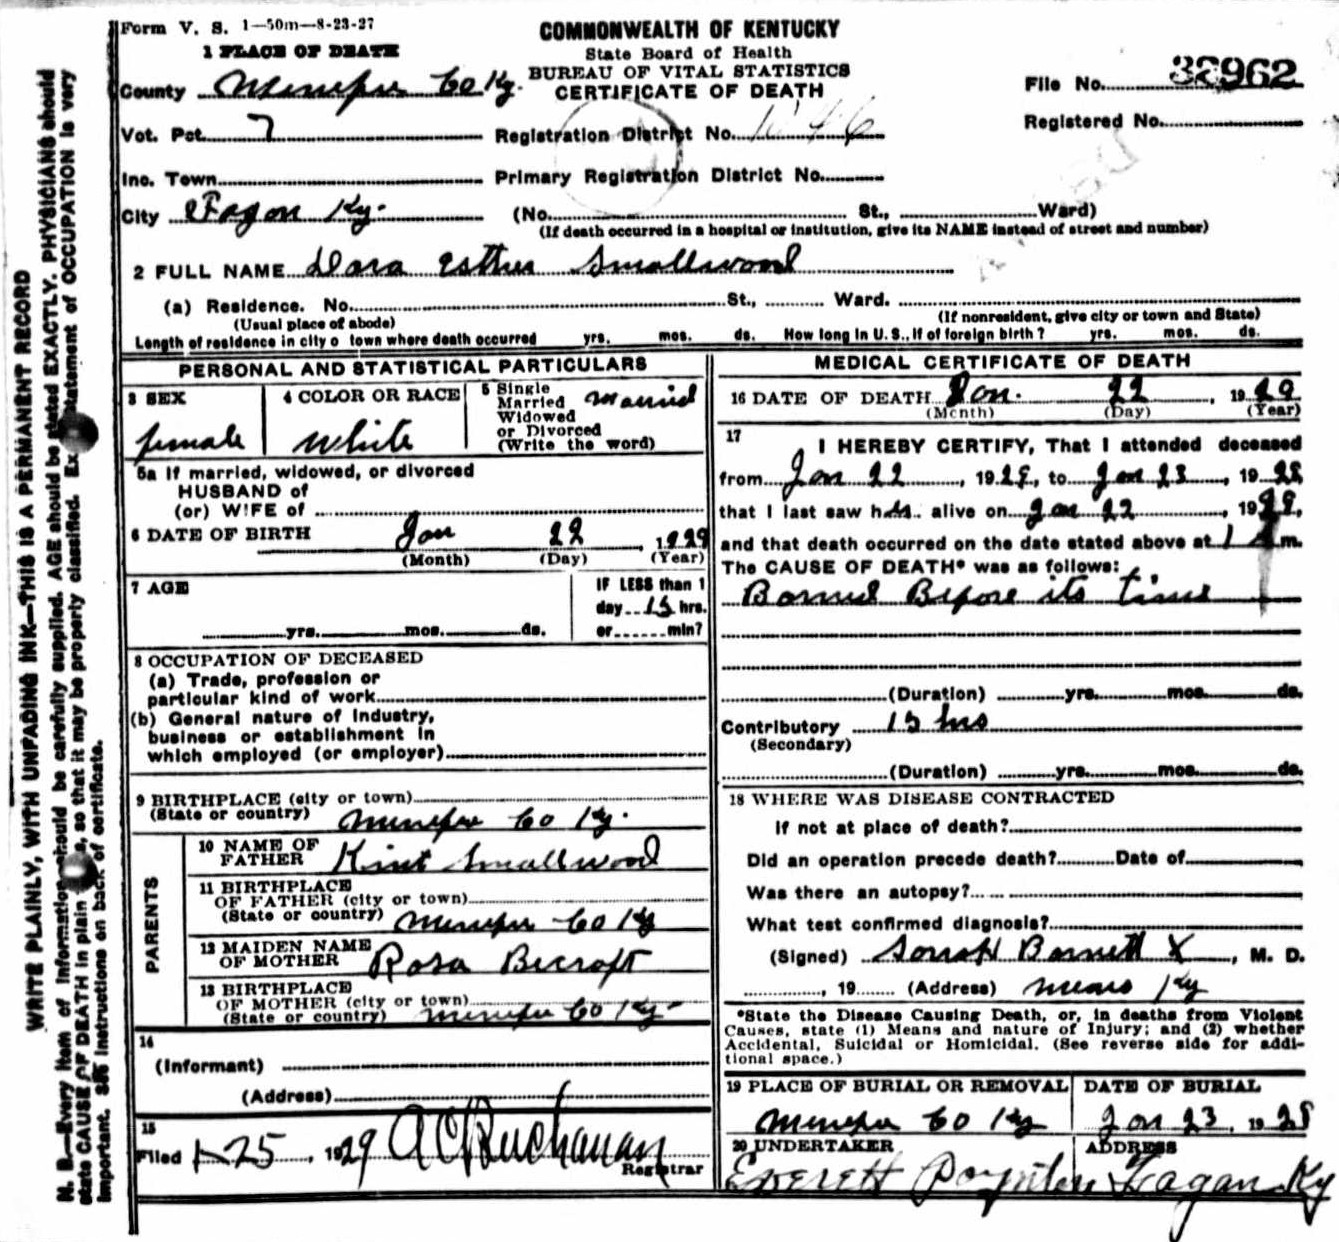 Form V. S. 1—50m—8-23-27
COMMONWEALTH OF KENTUCKY
State Board of Health
BUREAU OF VITAL STATISTICS
CERTIFICATE OF DEATH
1 PLACE OF DEATH
County Menefee Co Ky.
File No. 32962
Vot. Pct. 7
Registration District No. 1046
Registered No.
Inc. Town
Primary Registration District No.
City Fagan Ky.
(No. St., Ward)
(If death occurred in a hospital or institution, give its NAME instead of street and number)
2 FULL NAME Dara Esther Smallwood
(a) Residence. No. St., Ward.
(Usual place of abode)
(If nonresident, give city or town and State)
Length of residence in city o town where death occurred yrs. mos. ds. How long in U. S., if of foreign birth? yrs. mos. ds.
PERSONAL AND STATISTICAL PARTICULARS
3 SEX
female
4 COLOR OR RACE
White
5 Single
Married
Widowed
or Divorced
(Write the word)
Married
5a If married, widowed, or divorced
HUSBAND of
(or) WIFE of
6 DATE OF BIRTH Jan 22, 1929
(Month) (Day) (Year)
7 AGE
yrs. mos. ds.
IF LESS than 1
day 15 hrs.
or min?
8 OCCUPATION OF DECEASED
(a) Trade, profession or
particular kind of work
(b) General nature of Industry,
business or establishment in
which employed (or employer)
9 BIRTHPLACE (city or town)
(State or country) Menefee Co Ky.
PARENTS
10 NAME OF
FATHER Kint Smallwood
11 BIRTHPLACE
OF FATHER (city or town)
(State or country) Menefee Co Ky
12 MAIDEN NAME
OF MOTHER Rosa Becraft
13 BIRTHPLACE
OF MOTHER (city or town)
(State or country) Menefee Co Ky
14
(Informant)
(Address)
15
Filed 1-25, 1929 A C Buchanan
Registrar
MEDICAL CERTIFICATE OF DEATH
16 DATE OF DEATH Jan. 22, 1929
(Month) (Day) (Year)
17
I HEREBY CERTIFY, That I attended deceased
from Jan 22, 1929, to Jan 23, 19
that I last saw h alive on Jan 22, 19
and that death occurred on the date stated above at 1 m.
The CAUSE OF DEATH* was as follows:
Borned Before its time
(Duration) yrs. mos. ds.
Contributory 15 hrs
(Secondary)
(Duration) yrs. mos. ds.
18 WHERE WAS DISEASE CONTRACTED
If not at place of death?
Did an operation precede death? Date of
Was there an autopsy?
What test confirmed diagnosis?
(Signed) Sorrah Barnett X, M. D.
, 19 (Address) Means Ky
*State the Disease Causing Death, or, in deaths from Violent
Causes, state (1) Means and nature of Injury; and (2) whether
Accidental, Suicidal or Homicidal. (See reverse side for addi-
tional space.)
19 PLACE OF BURIAL OR REMOVAL
Menefee Co Ky
DATE OF BURIAL
Jan 23, 1928
20 UNDERTAKER
Everett Poynter
ADDRESS
Fagan Ky
WRITE PLAINLY, WITH UNFADING INK—THIS IS A PERMANENT RECORD
N. B.—Every item of information should be carefully supplied. AGE should be stated EXACTLY. PHYSICIANS should
state CAUSE OF DEATH in plain , so that it may be properly classified. Ex statement of OCCUPATION is very
important. See instructions on back of certificate.